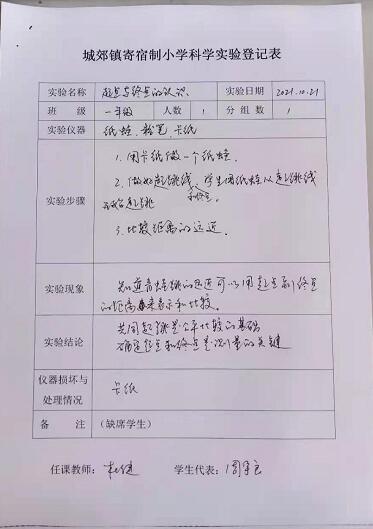 城郊镇寄宿制小学科学实验登记表
实验名称 起点与终点的认识 实验日期 2021.10.21
班级 一年级 人数 1 分组数 1
实验仪器 纸蛙、粉笔、卡纸
实验步骤
1. 用卡纸做一个纸蛙.
2. 做好起跳线, 学生用纸蛙从起跳线
开始起跳
3. 比较距离的远近.
实验现象 知道青蛙跳的远近可以用起点到终点
的距离来表示和比较.
实验结论 共同起跳是公平比较的基础
确定起点和终点是测量的关键
仪器损坏与
处理情况 卡纸
备注 (缺席学生)
任课教师: 学生代表: